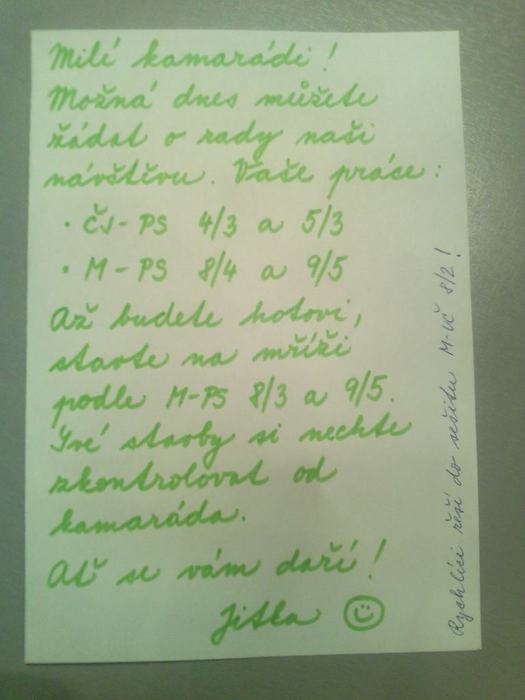 Milí kamarádi!
Možná dnes můžete
žádat o rady naši
návštěvu. Vaše práce:
• ČJ-PS 4/3 a 5/3
• M-PS 8/4 a 9/5
Až budete hotovi,
stavte na mříži
podle M-PS 8/3 a 9/5.
Své stavby si nechte
zkontrolovat od
kamaráda.
Ať se vám daří!
Jitka ☺
Rychlíci řeší do sešitu M-UČ 8/2!